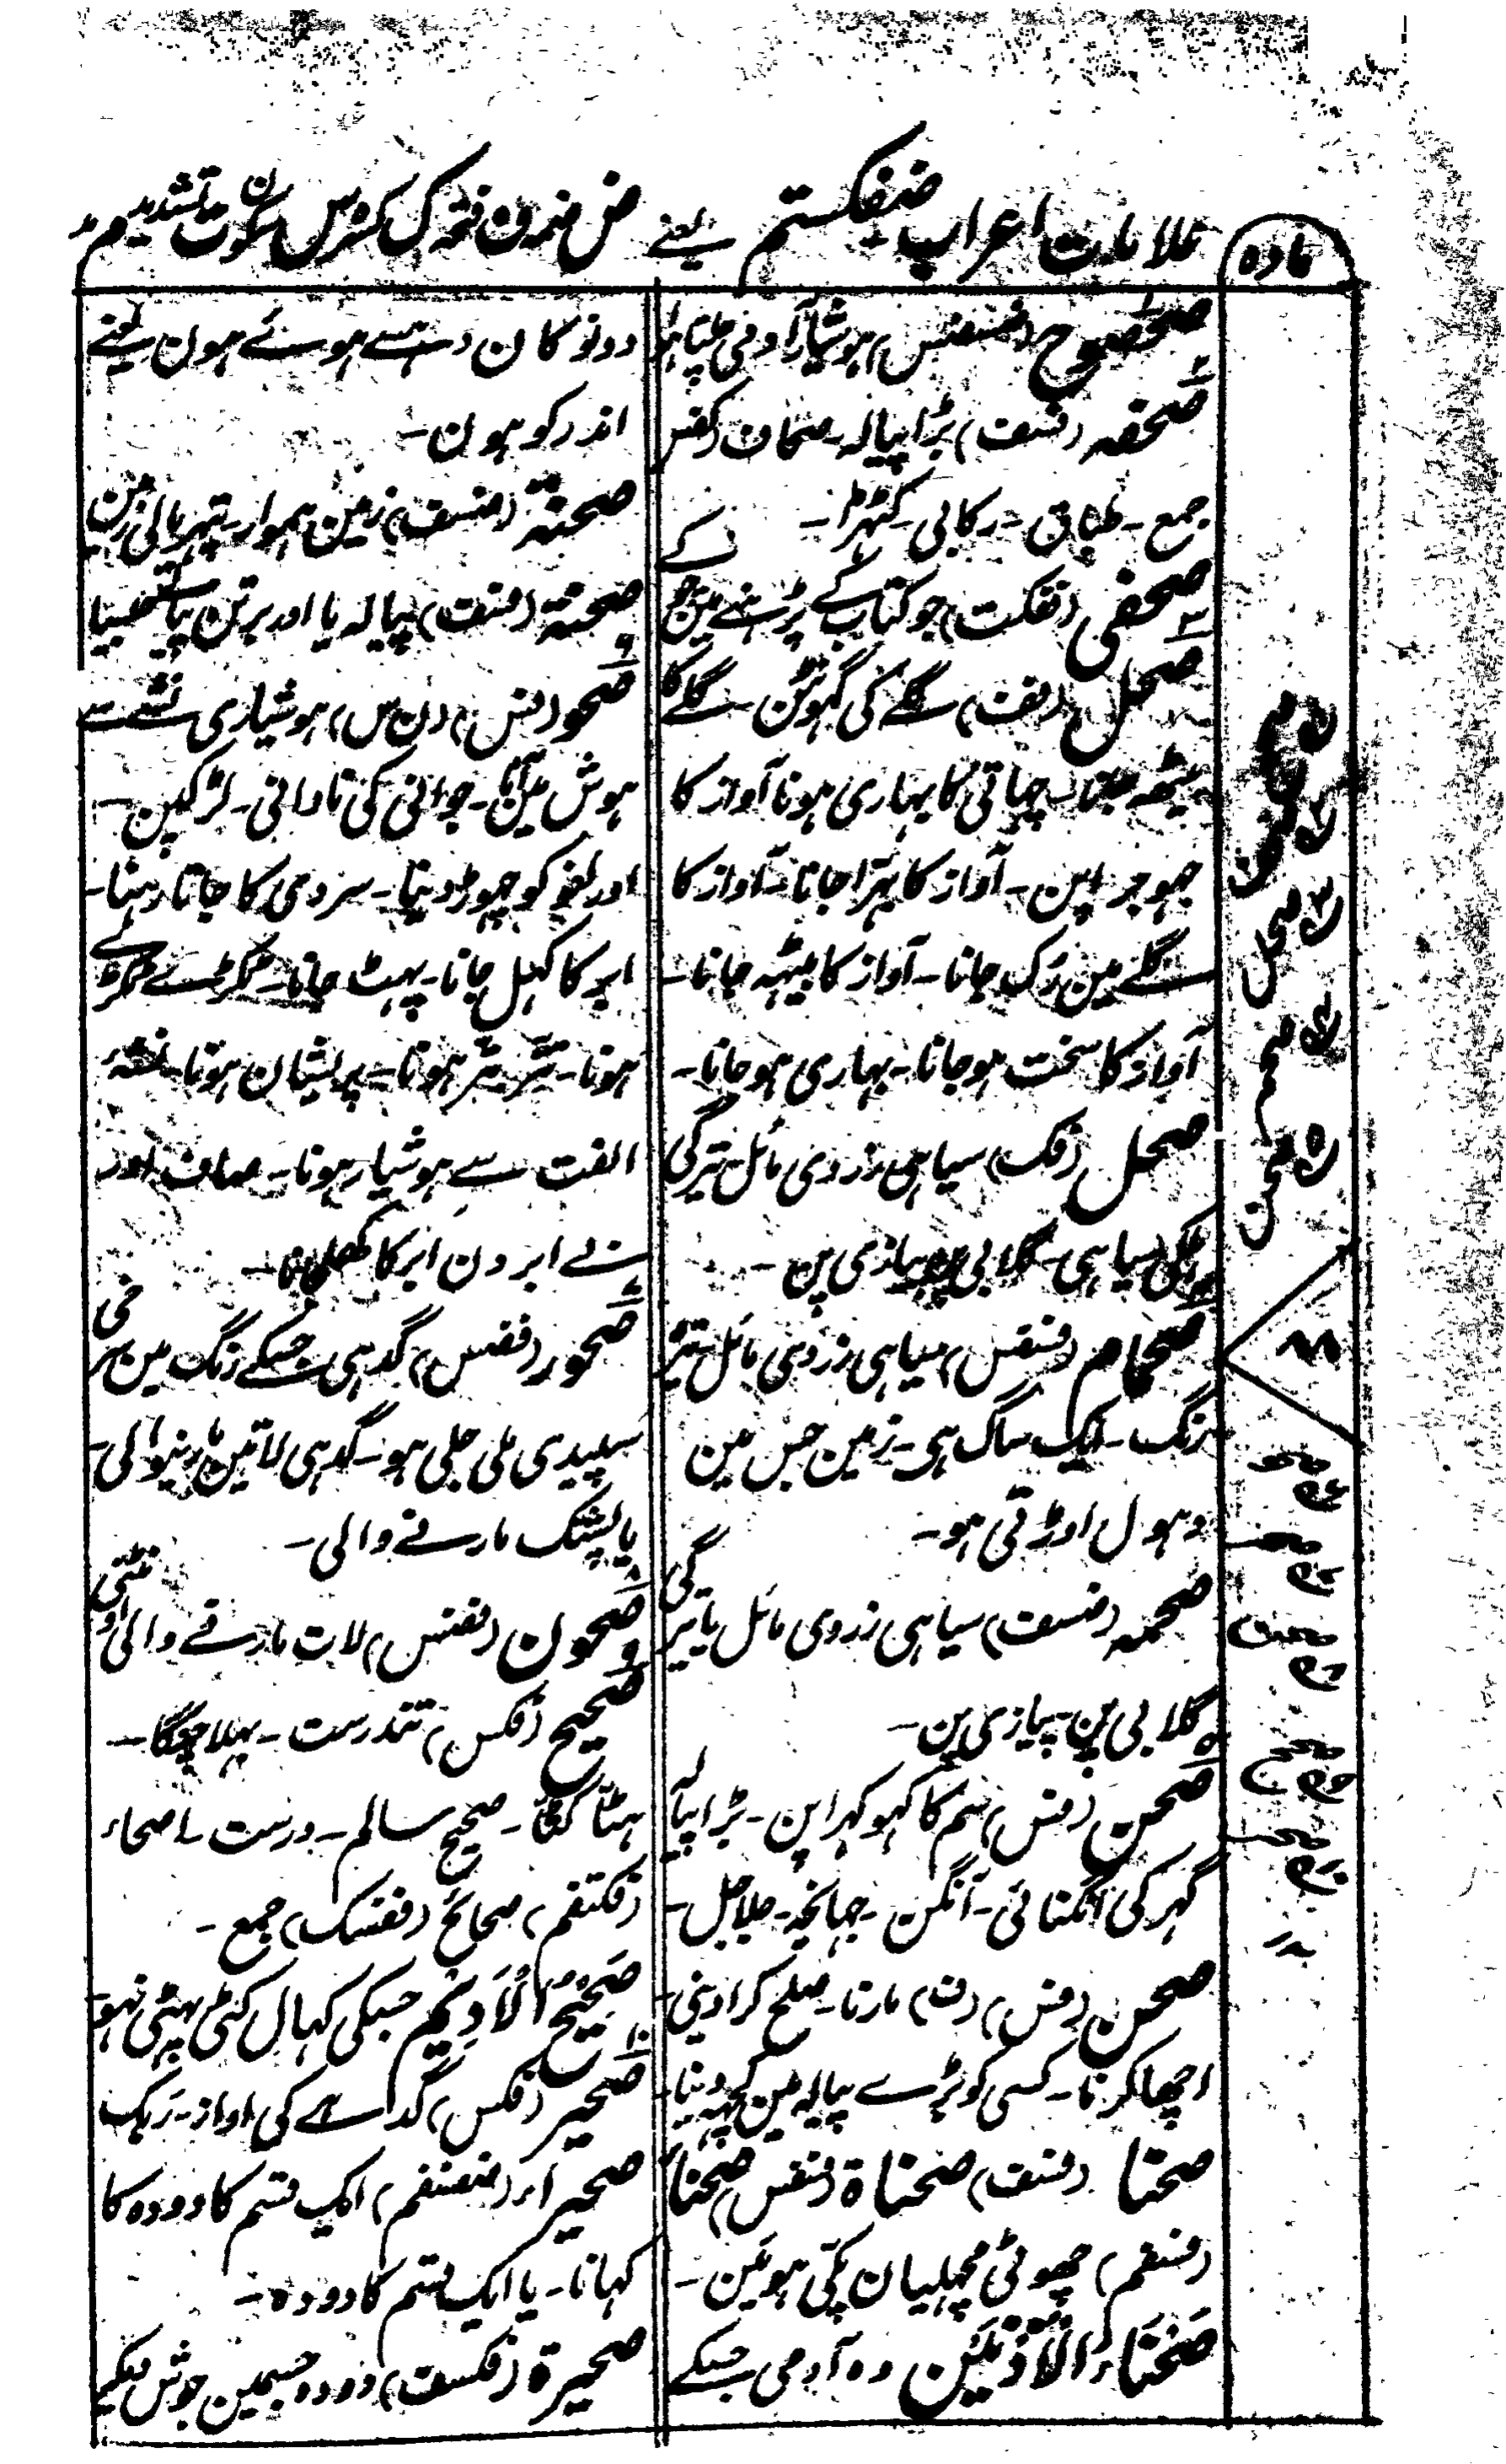 مادہ
علامات اعراب ضفکستم یعنے ض ضمہ ف فتحہ ک کسرہ س سکون ت تشدید م مد
صحصوح (ضسضس) ہوشیار آدمی چلتا ہوا
صحفہ (فسف) بڑا پیالہ۔ صحاف (کفس)
جمع۔ طباق۔ رکابی۔ کٹہڑا۔
صحفی (ففکت) جو کتاب کے پڑہنے مین چوکے
صحل (فف) گلے کی گہوٹن۔ گلے کا
بیٹھ جانا۔ چہاتی کا بہاری ہونا آواز کا
جہوجرا پن۔ آواز کا بہرا جانا۔ آواز کا
گلے مین رک جانا۔ آواز کا بیٹہہ جانا۔
آواز کا سخت ہوجانا۔ بہاری ہوجانا۔
صحل (فک) سیاہی زردی مائل تیرگی
سیاہی۔ گلابی پن پیازی پن۔
صحام (فسفس) سیاہی زردی مائل تیز
رنگ۔ ایک ساگ ہی۔ زمین جس مین
دہول اوڑتی ہو۔
صحمہ (ضسف) سیاہی زردی مائل یا تیرگی
گلابی پن۔ پیازی پن۔
صحن (فس) سم کا کہوکہرا پن۔ بڑا پیالہ
گہر کی انگنائی۔ آنگن۔ جہانجہ۔ جلاجل۔
صحن (فس) (ف) مارنا۔ صلح کرا دینی۔
اچھا کرنا۔ کسی کو بڑے پیالہ مین کچہہ دینا۔
صحنا (فسف) صحناة (فسفس) صحناء
(فسفم) چھوٹی مچہلیان پکی ہوئین۔
صَحْنَاءُ الْاُذْنَیْن وہ آدمی جسکے
دونو کان دہسے ہوئے ہون یعنے
اندر کو ہون۔
صحنة (ضسف) زمین ہموار۔ پتہریالی زمین
صحنة (فسف) پیالہ یا اور برتن
صحو (فس) (ن س) ہوشیاری نشے سے
ہوش مین آنا۔ جوانی کی نادانی۔ لڑکپن۔
اور لغو کو چہوڑ دینا۔ سردی کا جاتا رہنا۔
ابر کا کہل جانا۔ پہٹ جانا۔ ٹکڑے ٹکڑے
ہونا۔ تتر بتر ہونا۔ پریشان ہونا۔ نشہ
الفت سے ہوشیار ہونا۔ صاف اور
بے ابر دن ابر کا کھل جانا۔
صحور (ففس) گدہی جسکے رنگ مین سرخی
سپیدی ملی جلی ہو۔ گدہی لاتین مارنیوالی۔
یا پشتک مارنے والی۔
صحون (ففس) لات مارنے والی اونٹنی
صحیح (فکس) تندرست۔ بہلا چنگا۔
ہٹا کٹا۔ صحیح سالم۔ درست۔ اصحاء
(فکتفم) صحائح (ففسک) جمع۔
صَحِیْحُ الْاَدِیْمِ جسکی کہال کٹی پہٹی نہو۔
صحیر (فکس) گدہے کی اواز۔ رینگ
صحیراء (ضفسفم) ایک قسم کا دودہ کا
کہانا۔ یا ایک قسم کا دودہ۔
صحیرة (فکسف) دودہ جسمین جوش دیکر
صحل
صحم
صحن
صحو
صحر
صحن
صحح
صحر